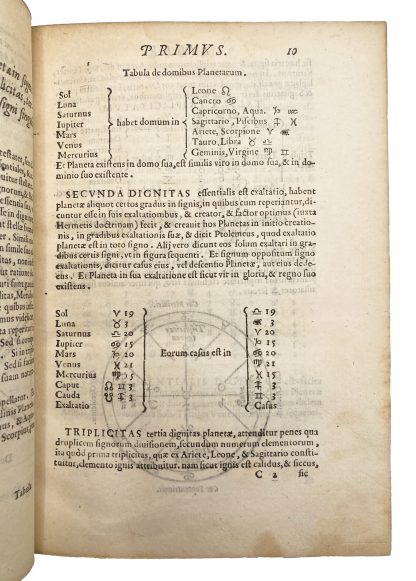 PRIMVS. 10
Tabula de domibus Planetarum.
Sol
Luna
Saturnus
Iupiter
Mars
Venus
Mercurius
habet domum in
Leone ♌
Cancro ♋
Capricorno, Aqua. ♑ ♒
Sagittario, Piscibus ♐ ♓
Ariete, Scorpione ♈ ♏
Tauro, Libra ♉ ♎
Geminis, Virgine ♊ ♍
Et Planeta existens in domo sua, est similis viro in domo sua, & in do-
minio suo existente.
SECVNDA DIGNITAS essentialis est exaltatio, habent
planetæ aliquot certos gradus in signis, in quibus cum reperiantur, di-
cuntur esse in suis exaltationibus, & creator, & factor optimus (iuxta
Hermetis doctrinam) fecit, & creauit hos Planetas in initio creatio-
nis, in gradibus exaltationis suæ, & dicit Ptolemeus, quod exaltatio
planetæ est in toto signo. Alij vero dicunt eos solum exaltari in gra-
dibus certis signi, vt in figura sequenti. Et signum oppositum signo
exaltationis, dicitur casus eius, vel descensio Planetæ, aut eius dede-
cus. Et Planeta in sua exaltatione est sicut vir in gloria, & regno suo
existens.
Sol ♈ 19
Luna ♉ 3
Saturnus ♎ 20
Iupiter ♋ 15
Mars ♑ 20
Venus ♓ 21
Mercurius ♍ 15
Caput ☊ ♊ 3
Cauda ☋ ♐ 3
Exaltatio
Eorum casus est in
♎ 19
♏ 3
♈ 20
♑ 15
♋ 20
♍ 21
♓ 15
♐ 3
♊ 3
Casus
TRIPLICITAS tertia dignitas planetæ, attenditur penes qua
druplicem signorum diuisionem, secundum numerum elementorum,
ita quòd prima triplicitas, quæ ex Ariete, Leone, & Sagittario consti-
tuitur, elemento ignis attribuitur. nam sicut ignis est calidus, & siccus,
C 2 sic
Tabula